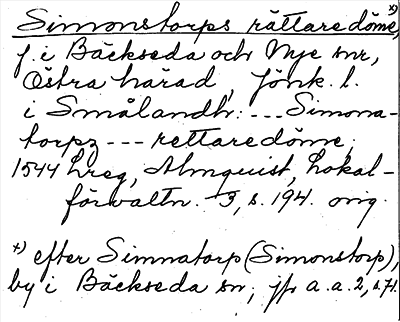 Simonstorps rättaredöme, x)
f. i Bäckseda och Nye snr,
Östra härad, Jönk. l.
i Smålandh: --- Simona-
torpz --- rettaredöme;
1544 Lreg, Almquist, Lokal-
förvaltn. 3, s. 194. orig.
x) efter Simnatorp (Simonstorp),
by i Bäckseda sn; jfr a.a. 2, s. 71.